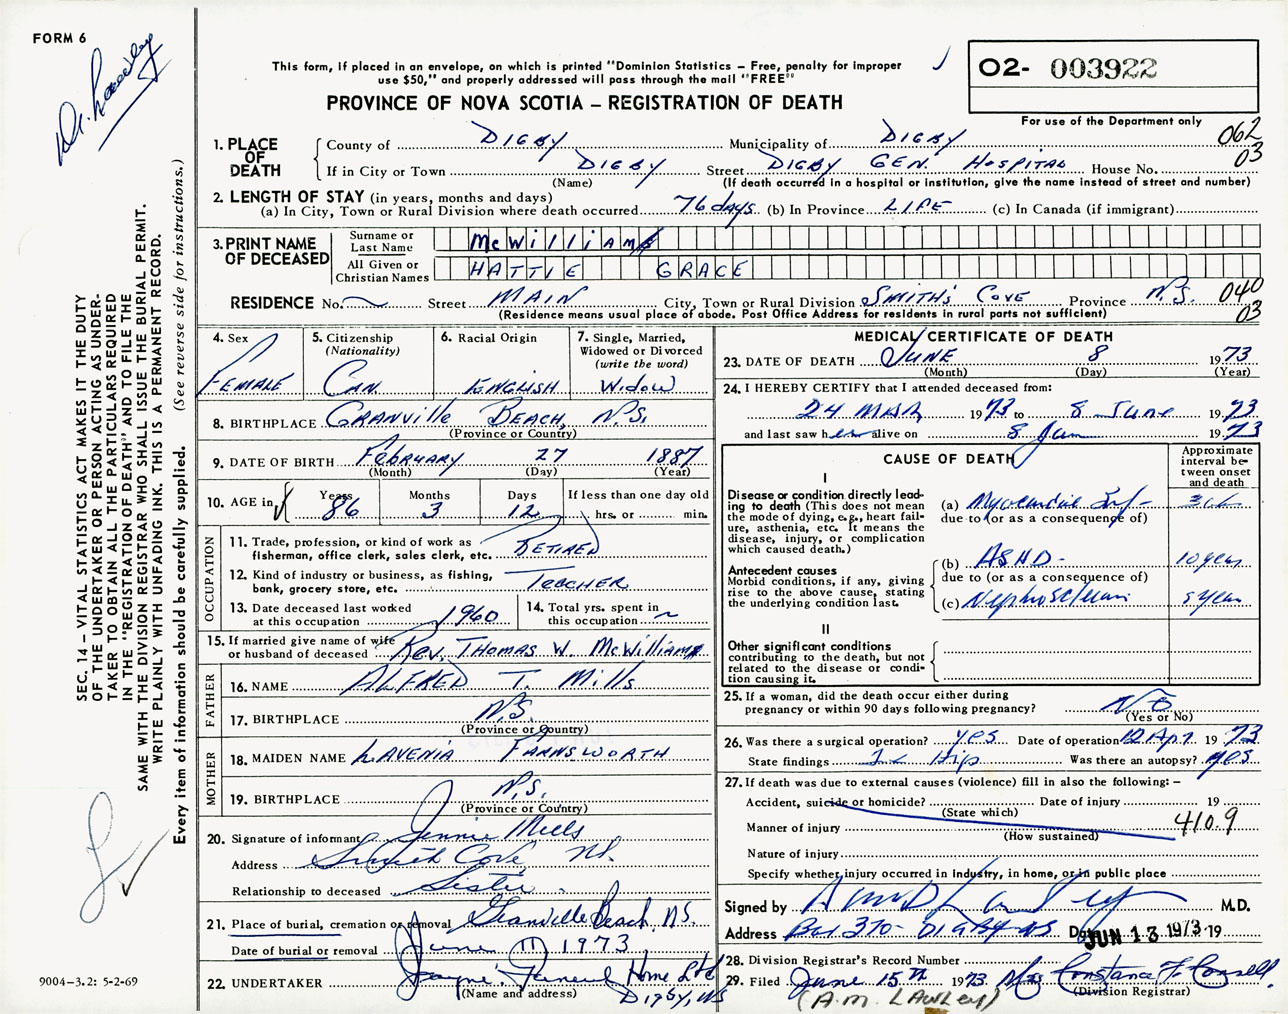 FORM 6
Dr. Lawley
This form, if placed in an envelope, on which is printed "Dominion Statistics – Free, penalty for improper
use $50," and properly addressed will pass through the mail "FREE"
PROVINCE OF NOVA SCOTIA – REGISTRATION OF DEATH
O2- 003922
For use of the Department only
062
03
1. PLACE OF DEATH
County of DIGBY Municipality of DIGBY
If in City or Town DIGBY Street DIGBY GEN. HOSPITAL House No.
(Name) (If death occurred in a hospital or institution, give the name instead of street and number)
2. LENGTH OF STAY (in years, months and days)
(a) In City, Town or Rural Division where death occurred 76 days (b) In Province LIFE (c) In Canada (if immigrant)
3. PRINT NAME OF DECEASED
Surname or Last Name McWilliam
All Given or Christian Names HATTIE GRACE
RESIDENCE No. Street MAIN City, Town or Rural Division SMITH'S COVE Province N.S. 040
03
(Residence means usual place of abode. Post Office Address for residents in rural parts not sufficient)
4. Sex
FEMALE
5. Citizenship
(Nationality)
CAN.
6. Racial Origin
ENGLISH
7. Single, Married,
Widowed or Divorced
(write the word)
WIDOW
8. BIRTHPLACE GRANVILLE BEACH, N.S.
(Province or Country)
9. DATE OF BIRTH FEBRUARY 27 1887
(Month) (Day) (Year)
10. AGE in Years 86 Months 3 Days 12 If less than one day old
hrs. or min.
OCCUPATION
11. Trade, profession, or kind of work as
fisherman, office clerk, sales clerk, etc. RETIRED
12. Kind of industry or business, as fishing,
bank, grocery store, etc. TEACHER
13. Date deceased last worked
at this occupation 1960
14. Total yrs. spent in
this occupation
15. If married give name of wife
or husband of deceased REV. THOMAS W. McWILLIAM
FATHER
16. NAME ALFRED T. Mills
17. BIRTHPLACE N.S.
(Province or Country)
MOTHER
18. MAIDEN NAME LAVENIA FARNSWORTH
19. BIRTHPLACE N.S.
(Province or Country)
20. Signature of informant Jennie Mills
Address Smith Cove NS.
Relationship to deceased Sister
21. Place of burial, cremation or removal Granville Beach, N.S.
Date of burial or removal June 11 1973
22. UNDERTAKER Jayne's Funeral Home Ltd
(Name and address) Digby, NS
MEDICAL CERTIFICATE OF DEATH
23. DATE OF DEATH JUNE 8 1973
(Month) (Day) (Year)
24. I HEREBY CERTIFY that I attended deceased from:
24 MAR 1973 to 8 June 1973
and last saw her alive on 8 Jun 1973
CAUSE OF DEATH
Approximate
interval be-
tween onset
and death
I
Disease or condition directly lead-
ing to death (This does not mean
the mode of dying, e.g., heart fail-
ure, asthenia, etc. It means the
disease, injury, or complication
which caused death.)
(a) Myocardial Inf-
due to (or as a consequence of)
Antecedent causes
Morbid conditions, if any, giving
rise to the above cause, stating
the underlying condition last.
(b) ASHD- 10 years
due to (or as a consequence of)
(c) Nephosclerosis 5 years
II
Other significant conditions
contributing to the death, but not
related to the disease or condi-
tion causing it.
25. If a woman, did the death occur either during
pregnancy or within 90 days following pregnancy? NO
(Yes or No)
26. Was there a surgical operation? yes Date of operation 12 Apr 1973
State findings Hip Was there an autopsy? yes
27. If death was due to external causes (violence) fill in also the following: –
Accident, suicide or homicide? Date of injury 19
(State which)
Manner of injury 410.9
(How sustained)
Nature of injury
Specify whether injury occurred in Industry, in home, or in public place
Signed by M.D.
Address Box 370- DIGBY NS Date JUN 13 1973 19
28. Division Registrar's Record Number
29. Filed June 15th 1973 Mrs Constance F. Connell
(Division Registrar)
(A.M. LAWLEY)
SEC. 14 – VITAL STATISTICS ACT MAKES IT THE DUTY
OF THE UNDERTAKER OR PERSON ACTING AS UNDER-
TAKER TO OBTAIN ALL THE PARTICULARS REQUIRED
IN THE "REGISTRATION OF DEATH" AND TO FILE THE
SAME WITH THE DIVISION REGISTRAR WHO SHALL ISSUE THE BURIAL PERMIT.
WRITE PLAINLY WITH UNFADING INK. THIS IS A PERMANENT RECORD.
Every item of information should be carefully supplied. (See reverse side for instructions.)
9004–3.2: 5-2-69